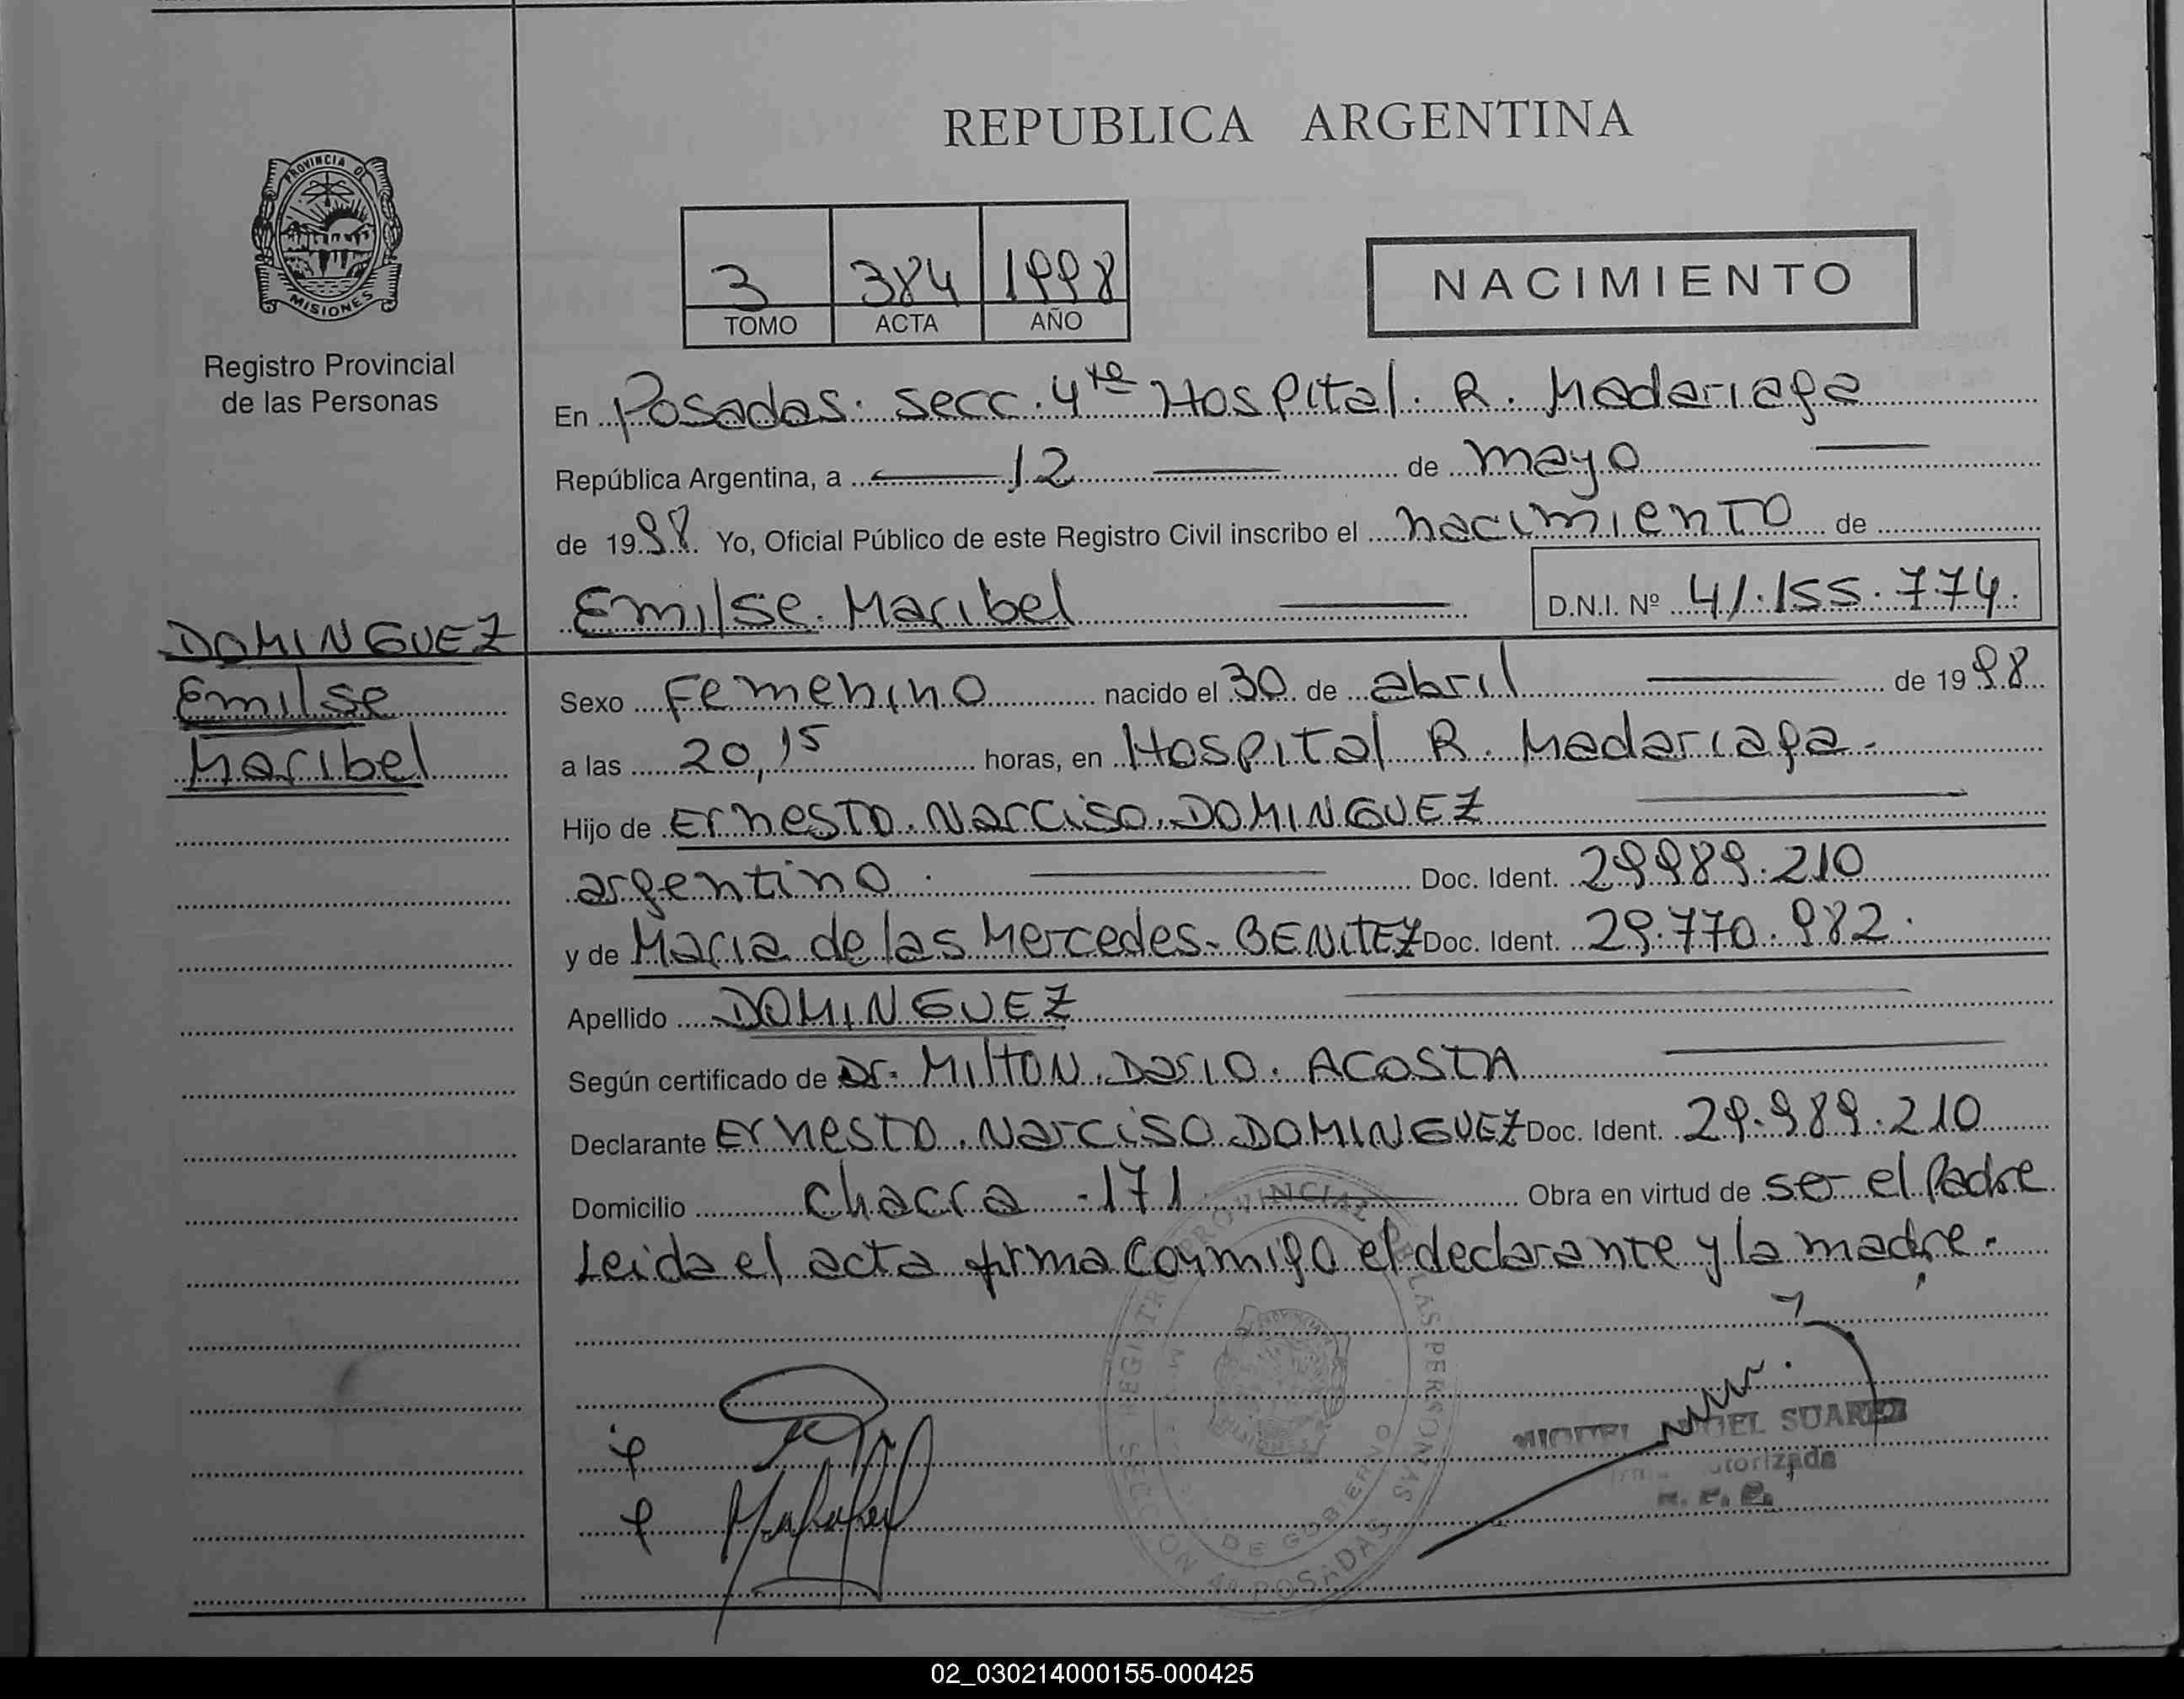 REPUBLICA ARGENTINA
PROVINCIA D
MISIONES
Registro Provincial
de las Personas
3 384 1998
TOMO ACTA AÑO
NACIMIENTO
En Posadas. secc. 4ta Hospital. R. Madariaga
República Argentina, a 12 de mayo
de 1998. Yo, Oficial Público de este Registro Civil inscribo el nacimiento de
Emilse Maribel D.N.I. Nº 41.155.774.
DOMINGUEZ
Emilse
Maribel
Sexo Femenino nacido el 30 de abril de 1998
a las 20,15 horas, en Hospital R. Madariaga.
Hijo de Ernesto Narciso DOMINGUEZ
argentino. Doc. Ident. 29989.210
y de Maria de las Mercedes. BENITEZ Doc. Ident. 29.770.982.
Apellido DOMINGUEZ
Según certificado de Dr. Milton Dario. ACOSTA
Declarante Ernesto Narciso DOMINGUEZ Doc. Ident. 29.989.210
Domicilio chacra 171 Obra en virtud de ser el Padre
Leida el acta firma conmigo el declarante y la madre.
REGISTRO PROVINCIAL DE LAS PERSONAS
DE GOBIERNO
SECCION 4a POSADAS
SUAREZ
02_030214000155-000425